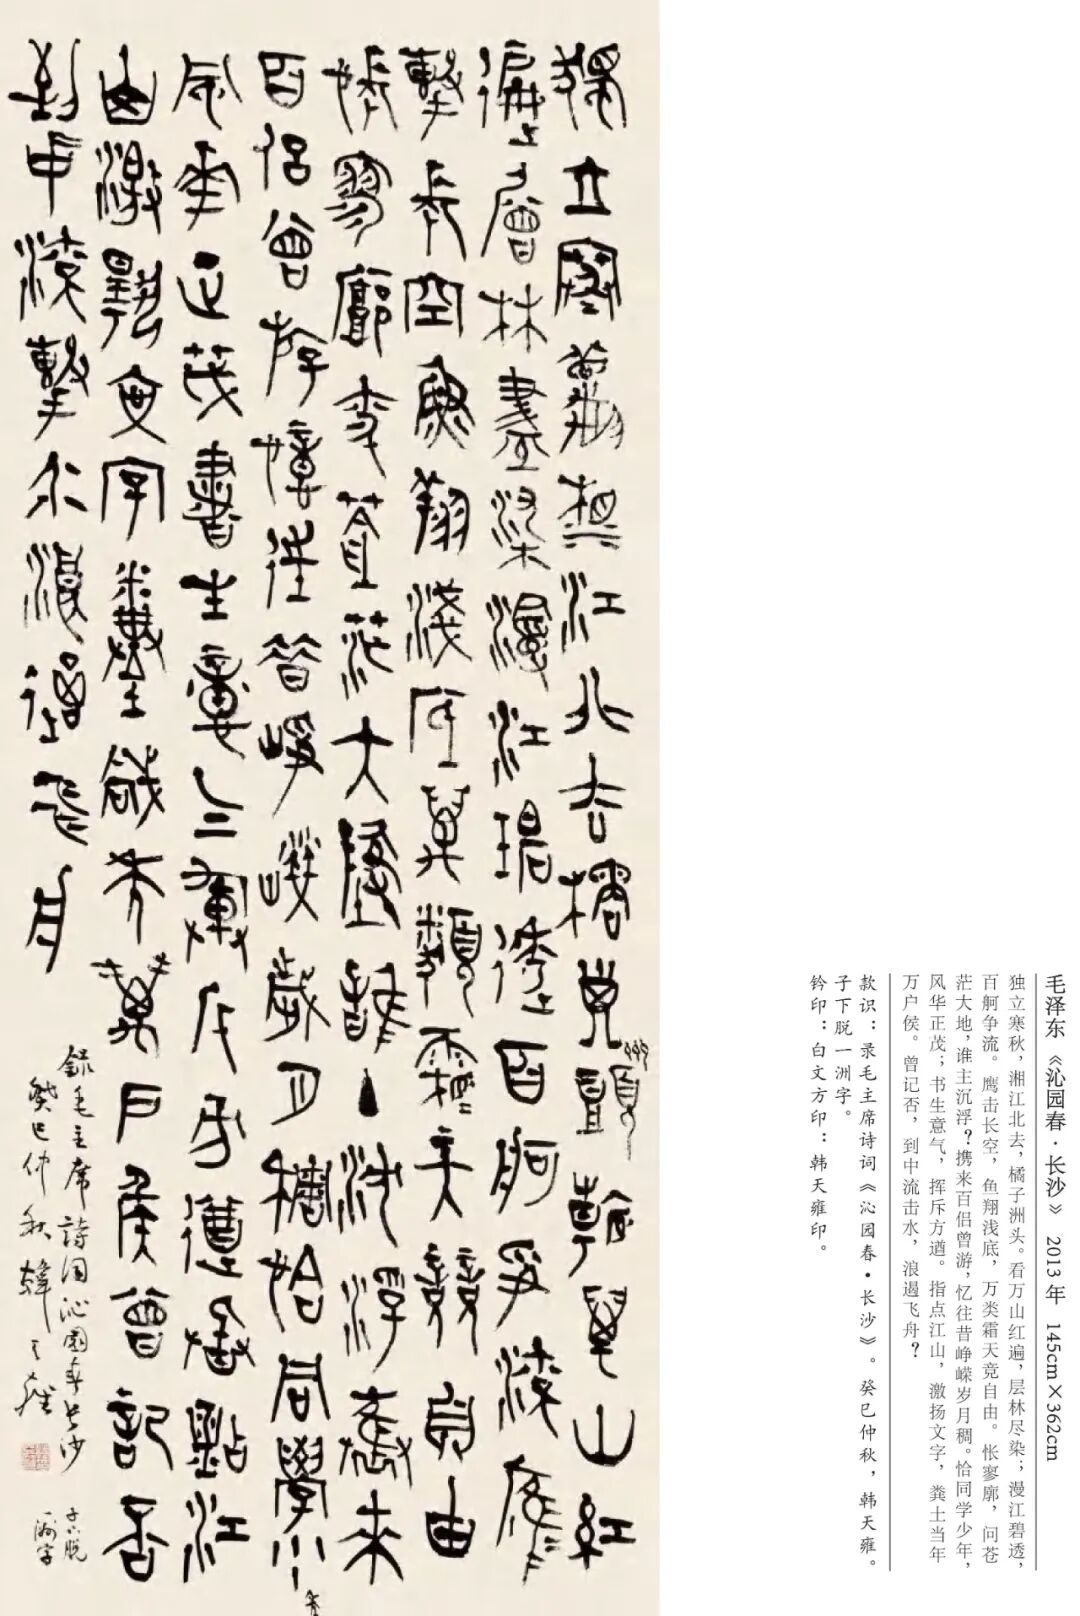 獨立寒秋湘江北去橘子頭看萬山紅
遍層林盡染漫江碧透百舸爭流鷹
擊長空魚翔淺底萬類霜天競自由
悵寥廓問蒼茫大地誰主沉浮攜來
百侶曾游憶往昔崢嶸歲月稠恰同學少年
風華正茂書生意氣揮斥方遒指點江
山激揚文字糞土當年萬户侯曾記否
到中流擊水浪遏飛舟
錄毛主席詩詞沁園春長沙
癸巳仲秋韓天雍
子下脱
一洲字
毛泽东《沁园春·长沙》 2013年 145cm×362cm
独立寒秋，湘江北去，橘子洲头。看万山红遍，层林尽染；漫江碧透，
百舸争流。鹰击长空，鱼翔浅底，万类霜天竞自由。怅寥廓，问苍
茫大地，谁主沉浮？携来百侣曾游，忆往昔峥嵘岁月稠。恰同学少年，
风华正茂；书生意气，挥斥方遒。指点江山，激扬文字，粪土当年
万户侯。曾记否，到中流击水，浪遏飞舟？
款识：录毛主席诗词《沁园春·长沙》。癸巳仲秋，韩天雍。
子下脱一洲字。
钤印：白文方印：韩天雍印。